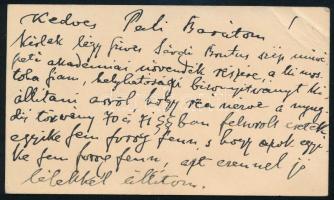 Kedves Pali Barátom!
Kérlek légy szíves Sárdi Brutus szépművé-
peti akadémiai növendék részére, a ki mos-
toha fiam, helyhatósági bizonyítványt ki-
állítani arról hogy reá nézve a nyug
díj törvény 70 és 71 §§ban felsorolt esetek
egyike sem forog fenn, s hogy azok egyi-
ke sem forog fenn, azt ezennel jó
lélekkel állítom.